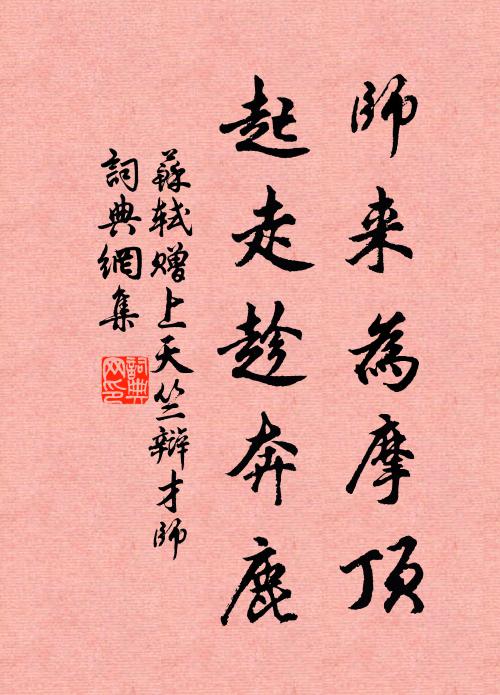 師来為摩頂
起走趁奔鹿
蘇軾贈上天竺辯才師
詞典網集
詞典網印